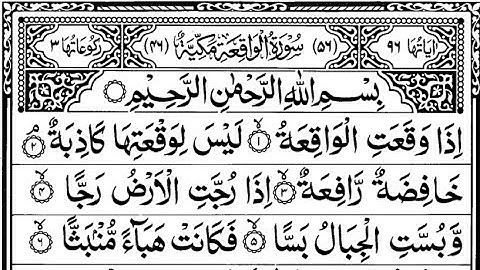 اٰیاتُهَا ٩٦ (٥٦) سُوْرَةُ الْوَاقِعَةِ مَكِّيَّةٌ (٤٦) رُكُوْعَاتُهَا ٣
بِسْمِ اللّٰهِ الرَّحْمٰنِ الرَّحِيْمِ
اِذَا وَقَعَتِ الْوَاقِعَةُ ۙ‏﴿١﴾ لَيْسَ لِوَقْعَتِهَا كَاذِبَةٌ ۘ‏﴿٢﴾
خَافِضَةٌ رَّافِعَةٌ ۙ‏﴿٣﴾ اِذَا رُجَّتِ الْاَرْضُ رَجًّا ۙ‏﴿٤﴾
وَّ بُسَّتِ الْجِبَالُ بَسًّا ۙ‏﴿٥﴾ فَكَانَتْ هَبَآءً مُّنْۢبَثًّا ۙ‏﴿٦﴾